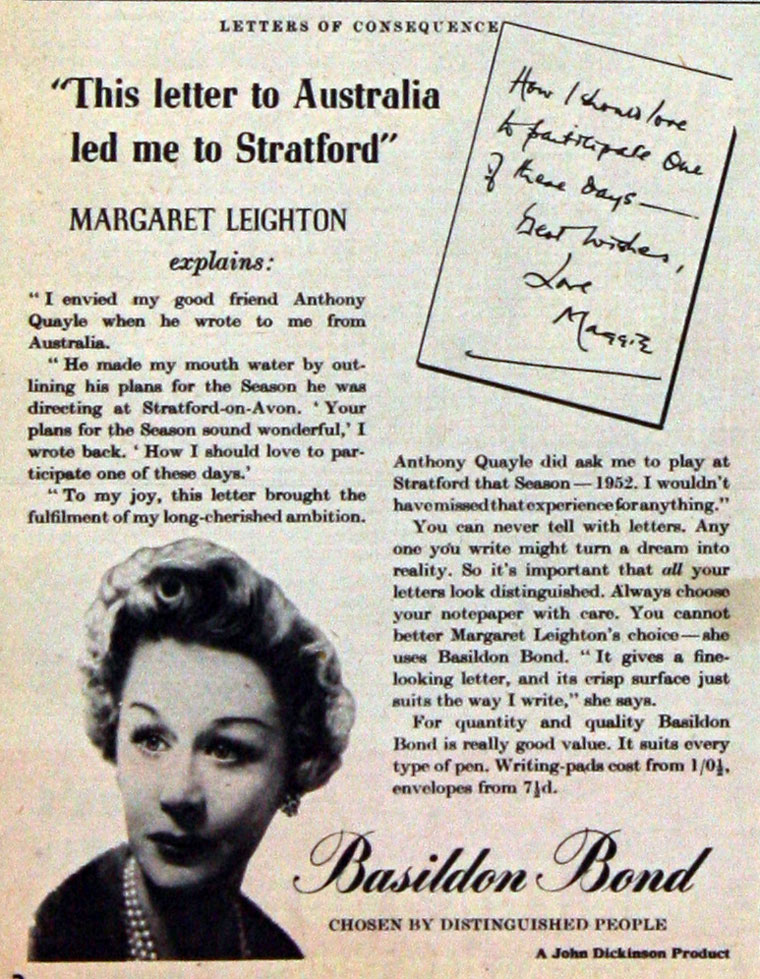 LETTERS OF CONSEQUENCE
"This letter to Australia
led me to Stratford"
MARGARET LEIGHTON
explains:
"I envied my good friend Anthony
Quayle when he wrote to me from
Australia.
"He made my mouth water by out-
lining his plans for the Season he was
directing at Stratford-on-Avon. 'Your
plans for the Season sound wonderful,' I
wrote back. 'How I should love to par-
ticipate one of these days.'
"To my joy, this letter brought the
fulfilment of my long-cherished ambition.
How I should love
to participate One
of these days—
best wishes,
Love
Maggie
Anthony Quayle did ask me to play at
Stratford that Season—1952. I wouldn't
have missed that experience for anything."
You can never tell with letters. Any
one you write might turn a dream into
reality. So it's important that all your
letters look distinguished. Always choose
your notepaper with care. You cannot
better Margaret Leighton's choice—she
uses Basildon Bond. "It gives a fine-
looking letter, and its crisp surface just
suits the way I write," she says.
For quantity and quality Basildon
Bond is really good value. It suits every
type of pen. Writing-pads cost from 1/0½,
envelopes from 7½d.
Basildon Bond
CHOSEN BY DISTINGUISHED PEOPLE
A John Dickinson Product